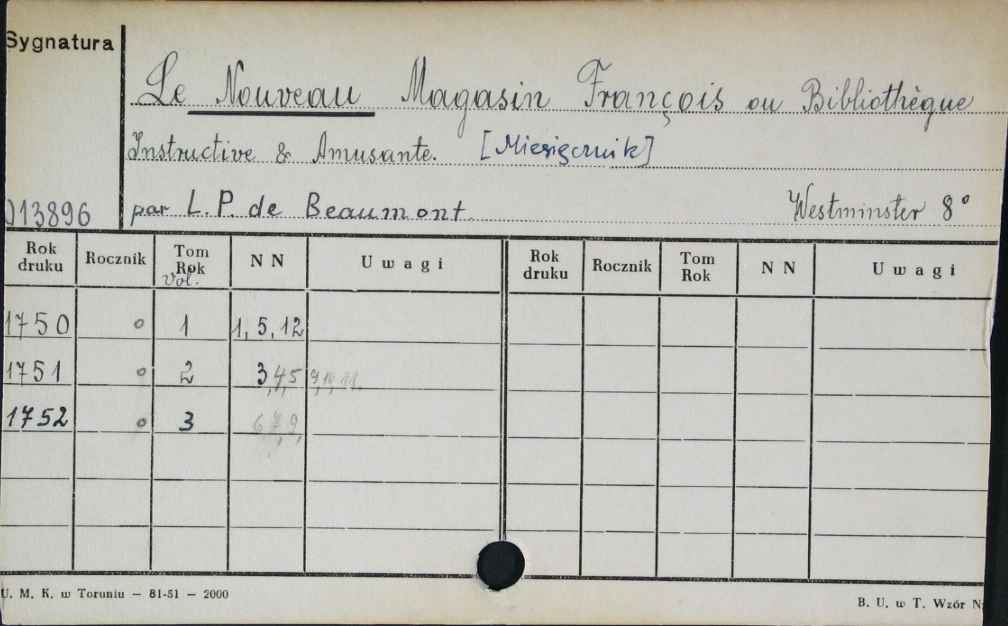 Sygnatura
Le Nouveau Magasin François ou Bibliothèque
Instructive & Amusante. [Miesięcznik]
013896 par L. P. de Beaumont Westminster 8°
Rok druku Rocznik Tom Rok Vol. N N Uwagi Rok druku Rocznik Tom Rok N N Uwagi
1750 o 1 1, 5, 12
1751 o 2 3, 4, 5 9, 10, 11.
1752 o 3 6, 7, 9,
U. M. K. w Toruniu — 81-51 — 2000
B. U. w T. Wzór N